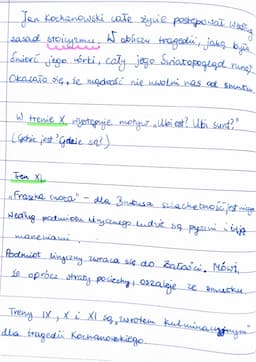 Jan Kochanowski całe życie postępował według
zasad stoicyzmu. W obliczu tragedii, jaką była
śmierć jego córki, cały jego światopogląd runął.
Okazało się, że mądrość nie uwolni nas od smutku.
W trenie X występuje motyw „Ubi est? Ubi sunt?"
(Gdzie jest? Gdzie są?)
Tren XI
„Fraszka cnota" - dla Brutusa szlachetność jest
Według podmiotu lirycznego ludzie są pyszni i żyją
Podmiot liryczny zwraca się do Żałości. Mówi,
że oprócz straty pociechy, oszaleje ze smutku.
Treny IX, X i XI są „zwrotem kulminacyjnym"
dla tragedii Kochanowskiego.